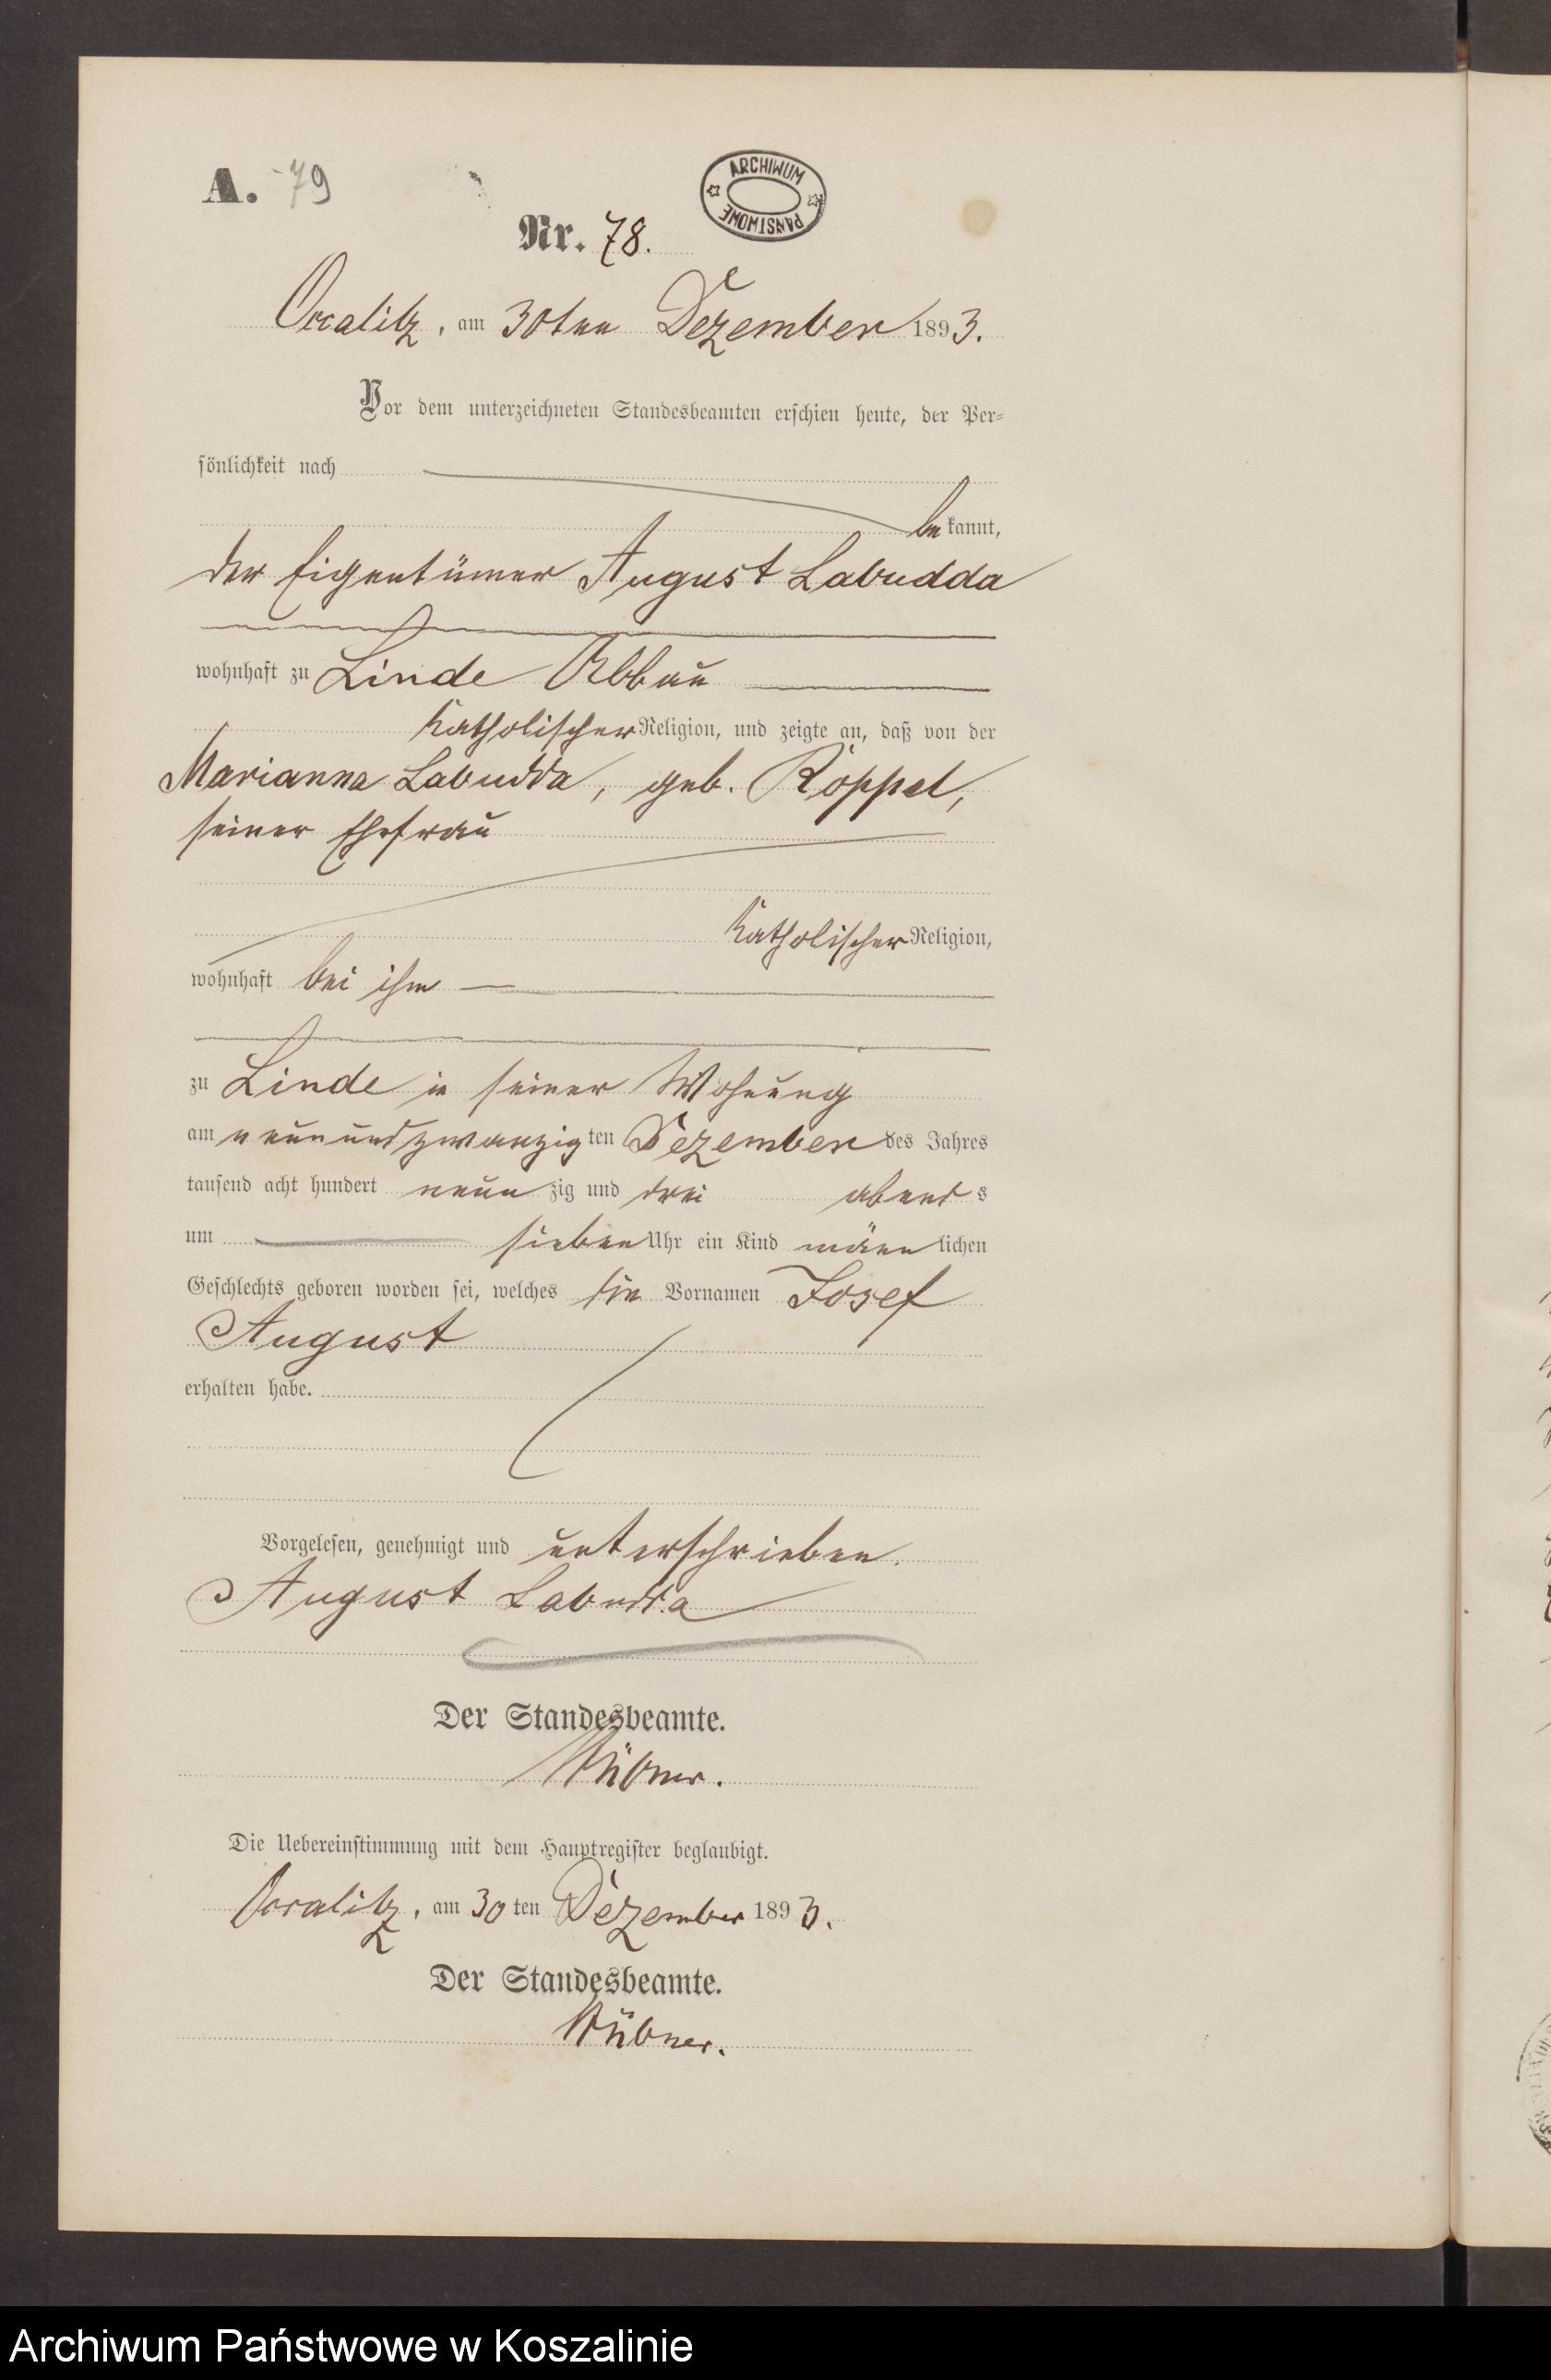 A. 79
ARCHIWUM PAŃSTWOWE
Nr. 78.
Occalitz, am 30ten Dezember 1893.
Vor dem unterzeichneten Standesbeamten erschien heute, der Per-
sönlichkeit nach
bekannt,
der Eigentümer August Labudda
wohnhaft zu Linde Abbau
katholischer Religion, und zeigte an, daß von der
Marianna Labudda, geb. Röppel,
seiner Ehefrau
katholischer Religion,
wohnhaft bei ihm
zu Linde in seiner Wohnung
am neunundzwanzigten Dezember des Jahres
tausend acht hundert neunzig und drei abends
um sieben Uhr ein Kind männlichen
Geschlechts geboren worden sei, welches die Vornamen Josef
August
erhalten habe.
Vorgelesen, genehmigt und unterschrieben.
August Labudda
Der Standesbeamte.
Die Uebereinstimmung mit dem Hauptregister beglaubigt.
Occalitz, am 30ten Dezember 1893.
Der Standesbeamte.
Archiwum Państwowe w Koszalinie